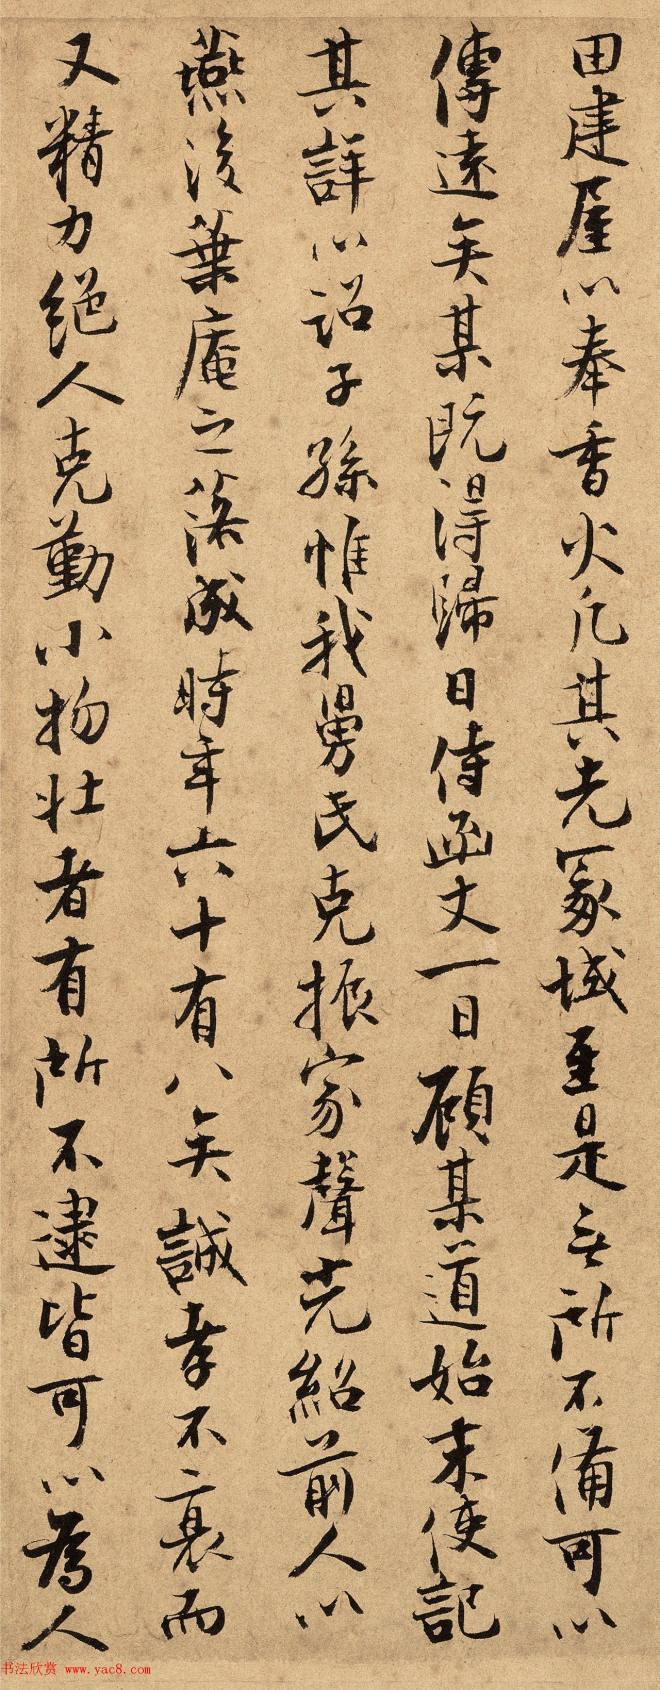 田建屋以奉香火凡其先冢域至是無所不備可以
傳遠矣某既得歸日侍函丈一日顧某道始末使記
其詳以詔子孫惟我舅氏克振家聲光紹前人以
燕後葉庵之落成時年六十有八矣誠孝不衰而
又精力絕人克勤小物壯者有所不逮皆可以為人
书法欣赏 www.yac8.com